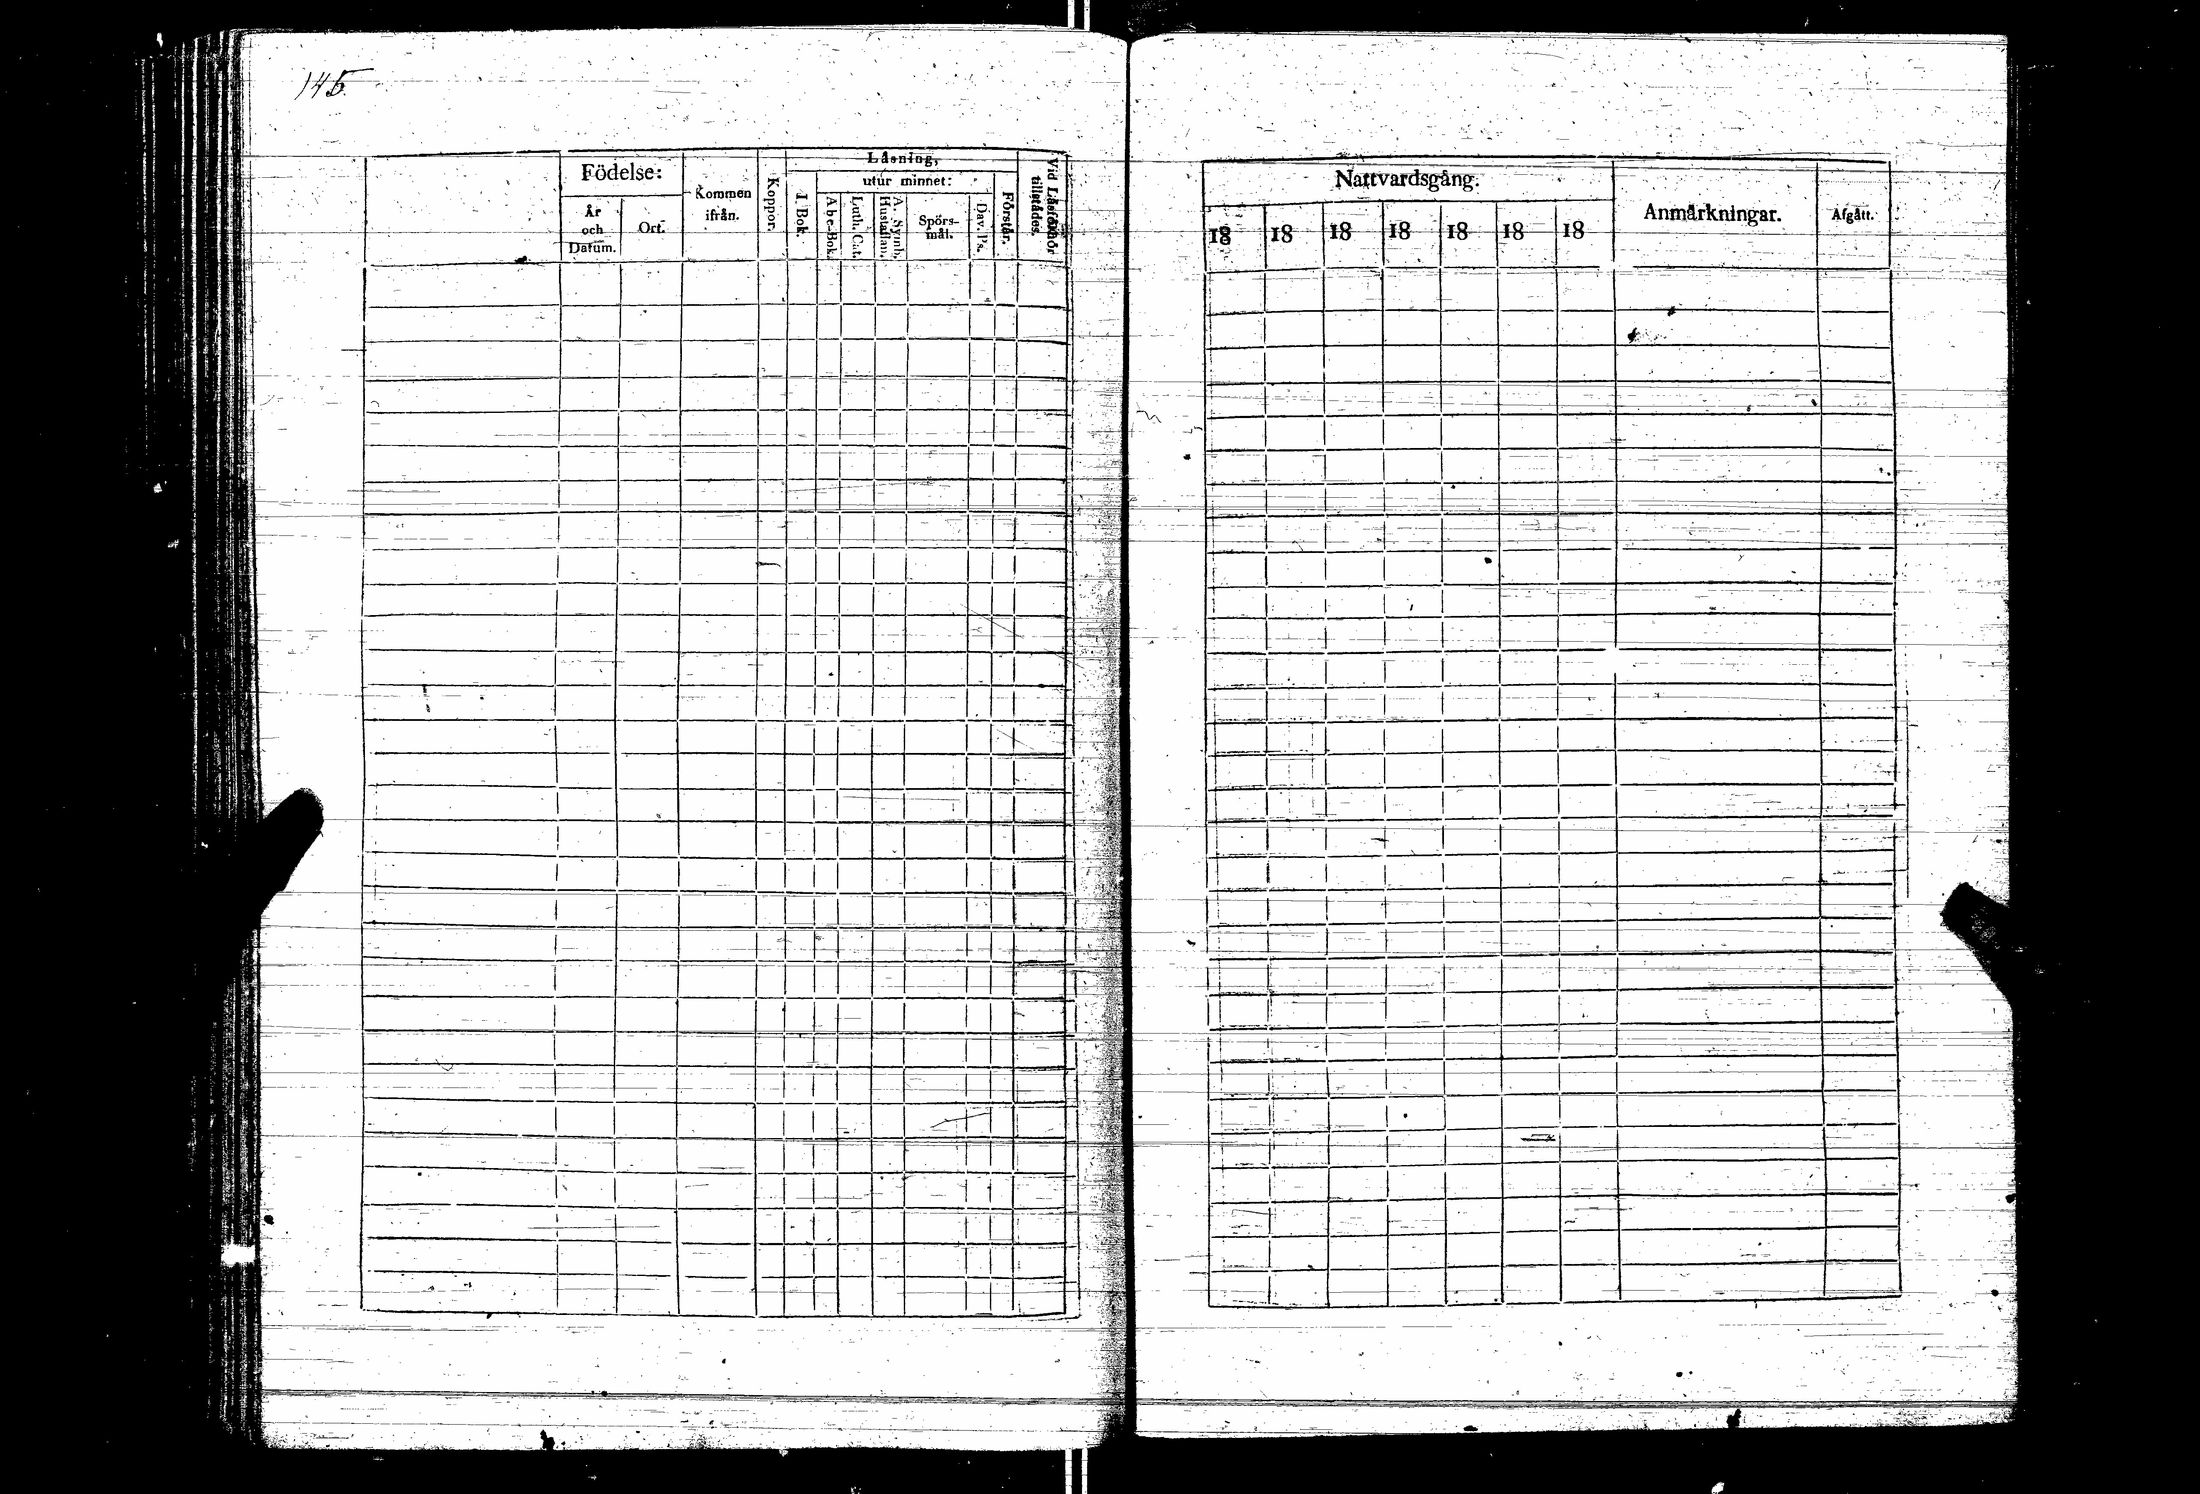 145.
Födelse:
År
och
Datum.
Ort.
Kommen
ifrån.
Koppor.
Läsning,
I Bok.
utur minnet:
Abc-Bok.
Luth. Cat.
A. Symb.
Hustaflan.
Spörs-
mål.
Dav. Ps.
Förstår.
Vid Läsförhör
tillstädes.
Nattvardsgång.
18 18 18 18 18 18 18
Anmärkningar.
Afgått.